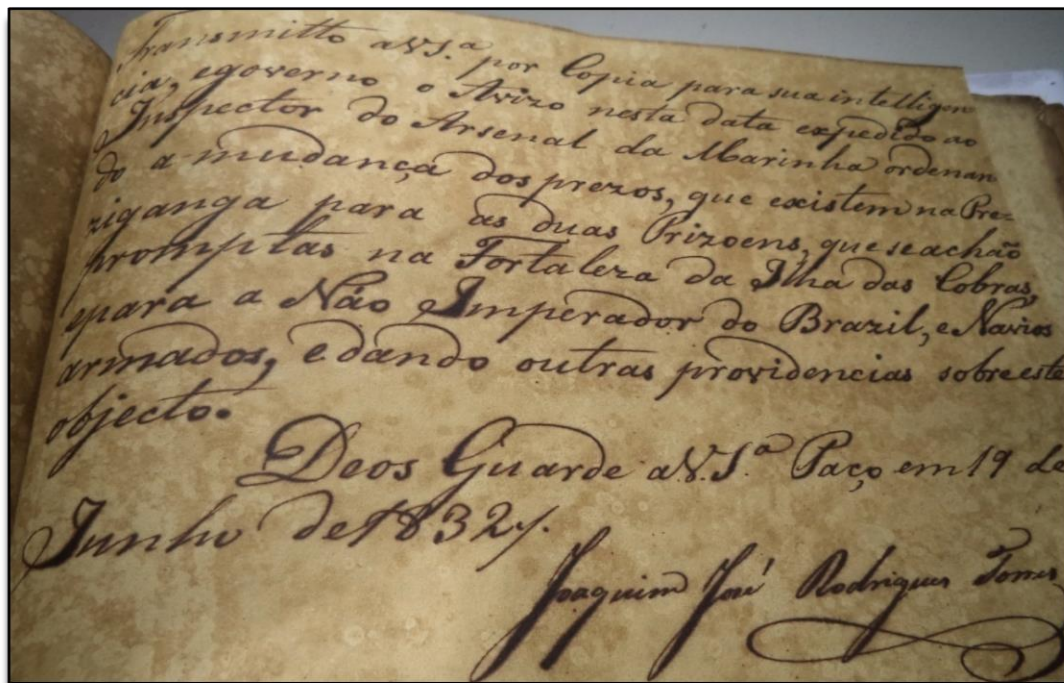 Transmitto a V.S.ª por Copia para sua intelligen
cia, e governo o Avizo nesta data expedido ao
Inspector do Arsenal da Marinha ordenan
do a mudança dos prezos, que existem na Pre=
ziganga para as duas Prizoens, que se achão
promptas na Fortaleza da Ilha das Cobras,
e para a Náo Imperador do Brazil, e Navios
armados, e dando outras providencias sobre este
objecto.
Deos Guarde a V.S.ª Paço em 19 de
Junho de 1832/.
Joaquim José Rodrigues Torres